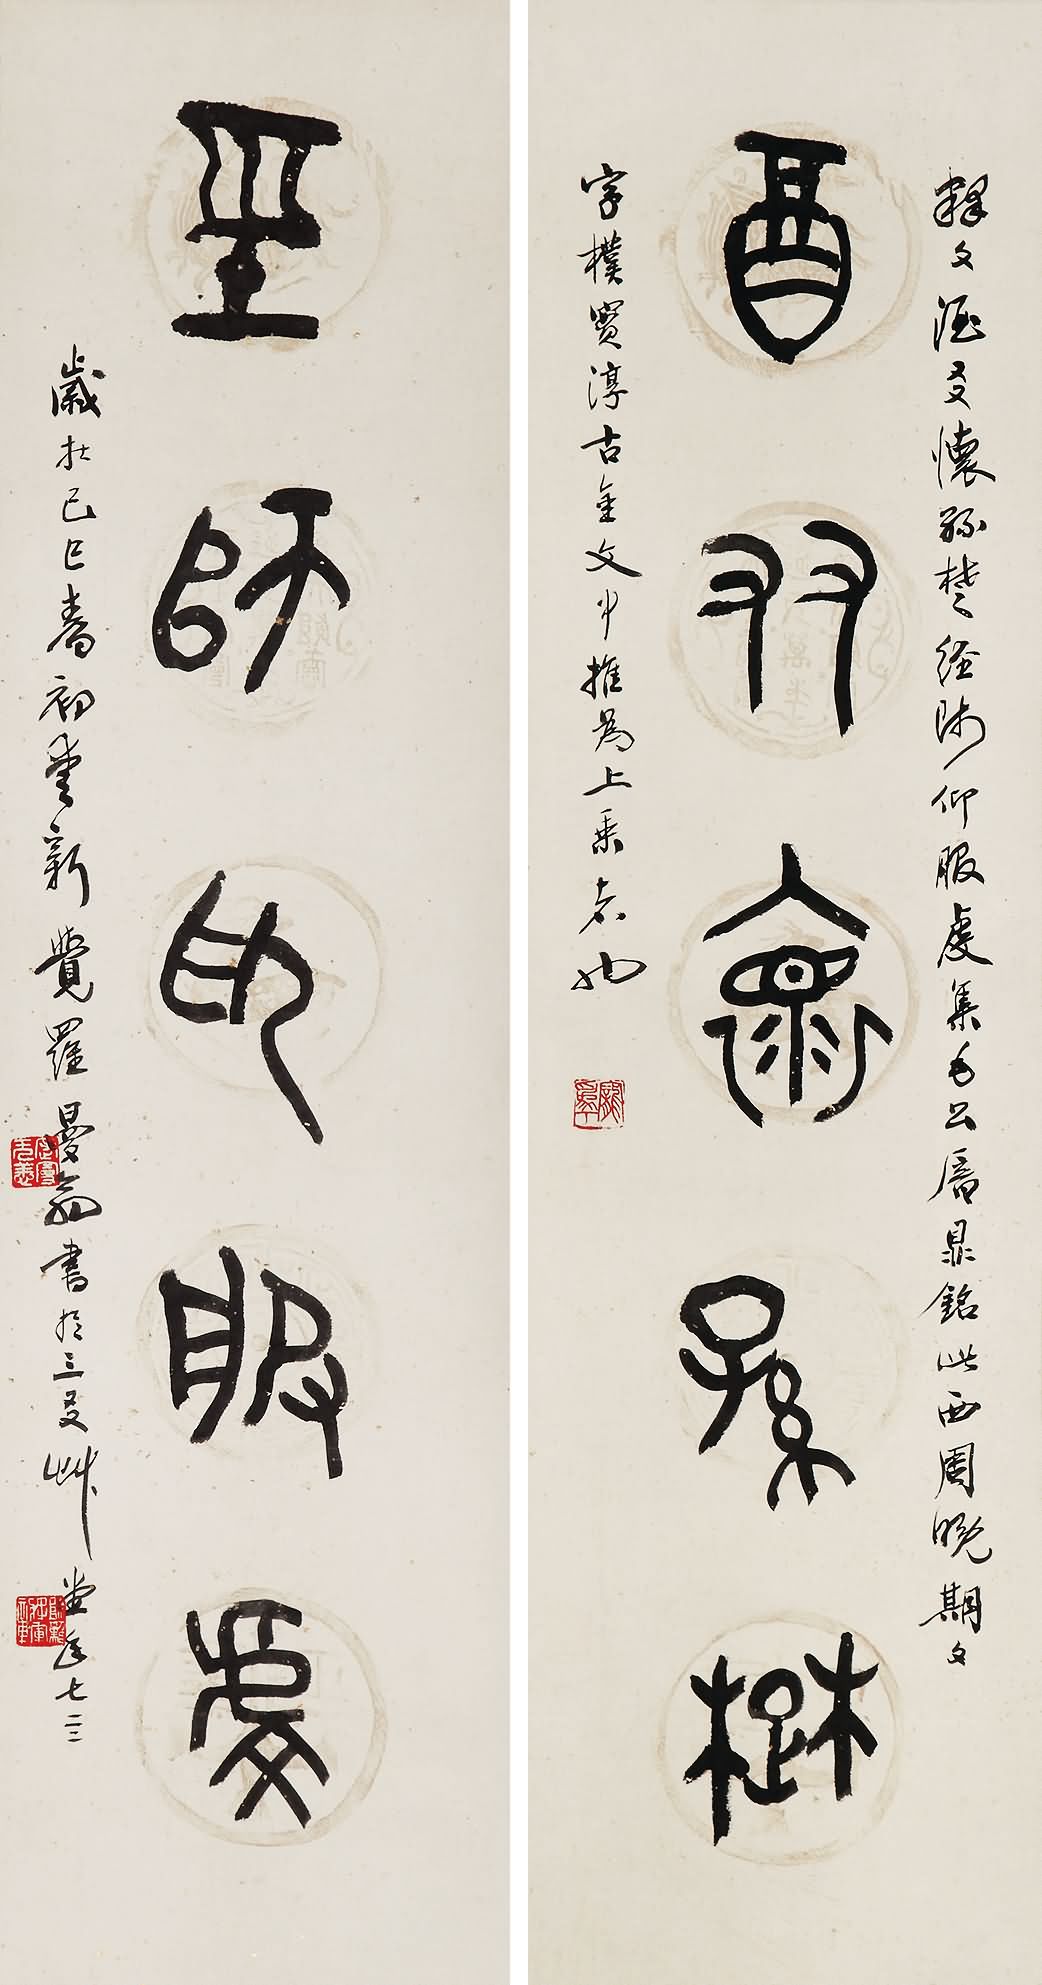 酉友褱孫楚
巠師卬服虔
釋文酒友懷孫楚經師仰服虔集毛公厝鼎銘此西周晚期文
字樸實淳古金文中推為上乘者也
歲在己巳春初愛新覺羅曼翁書於三友草堂年七三